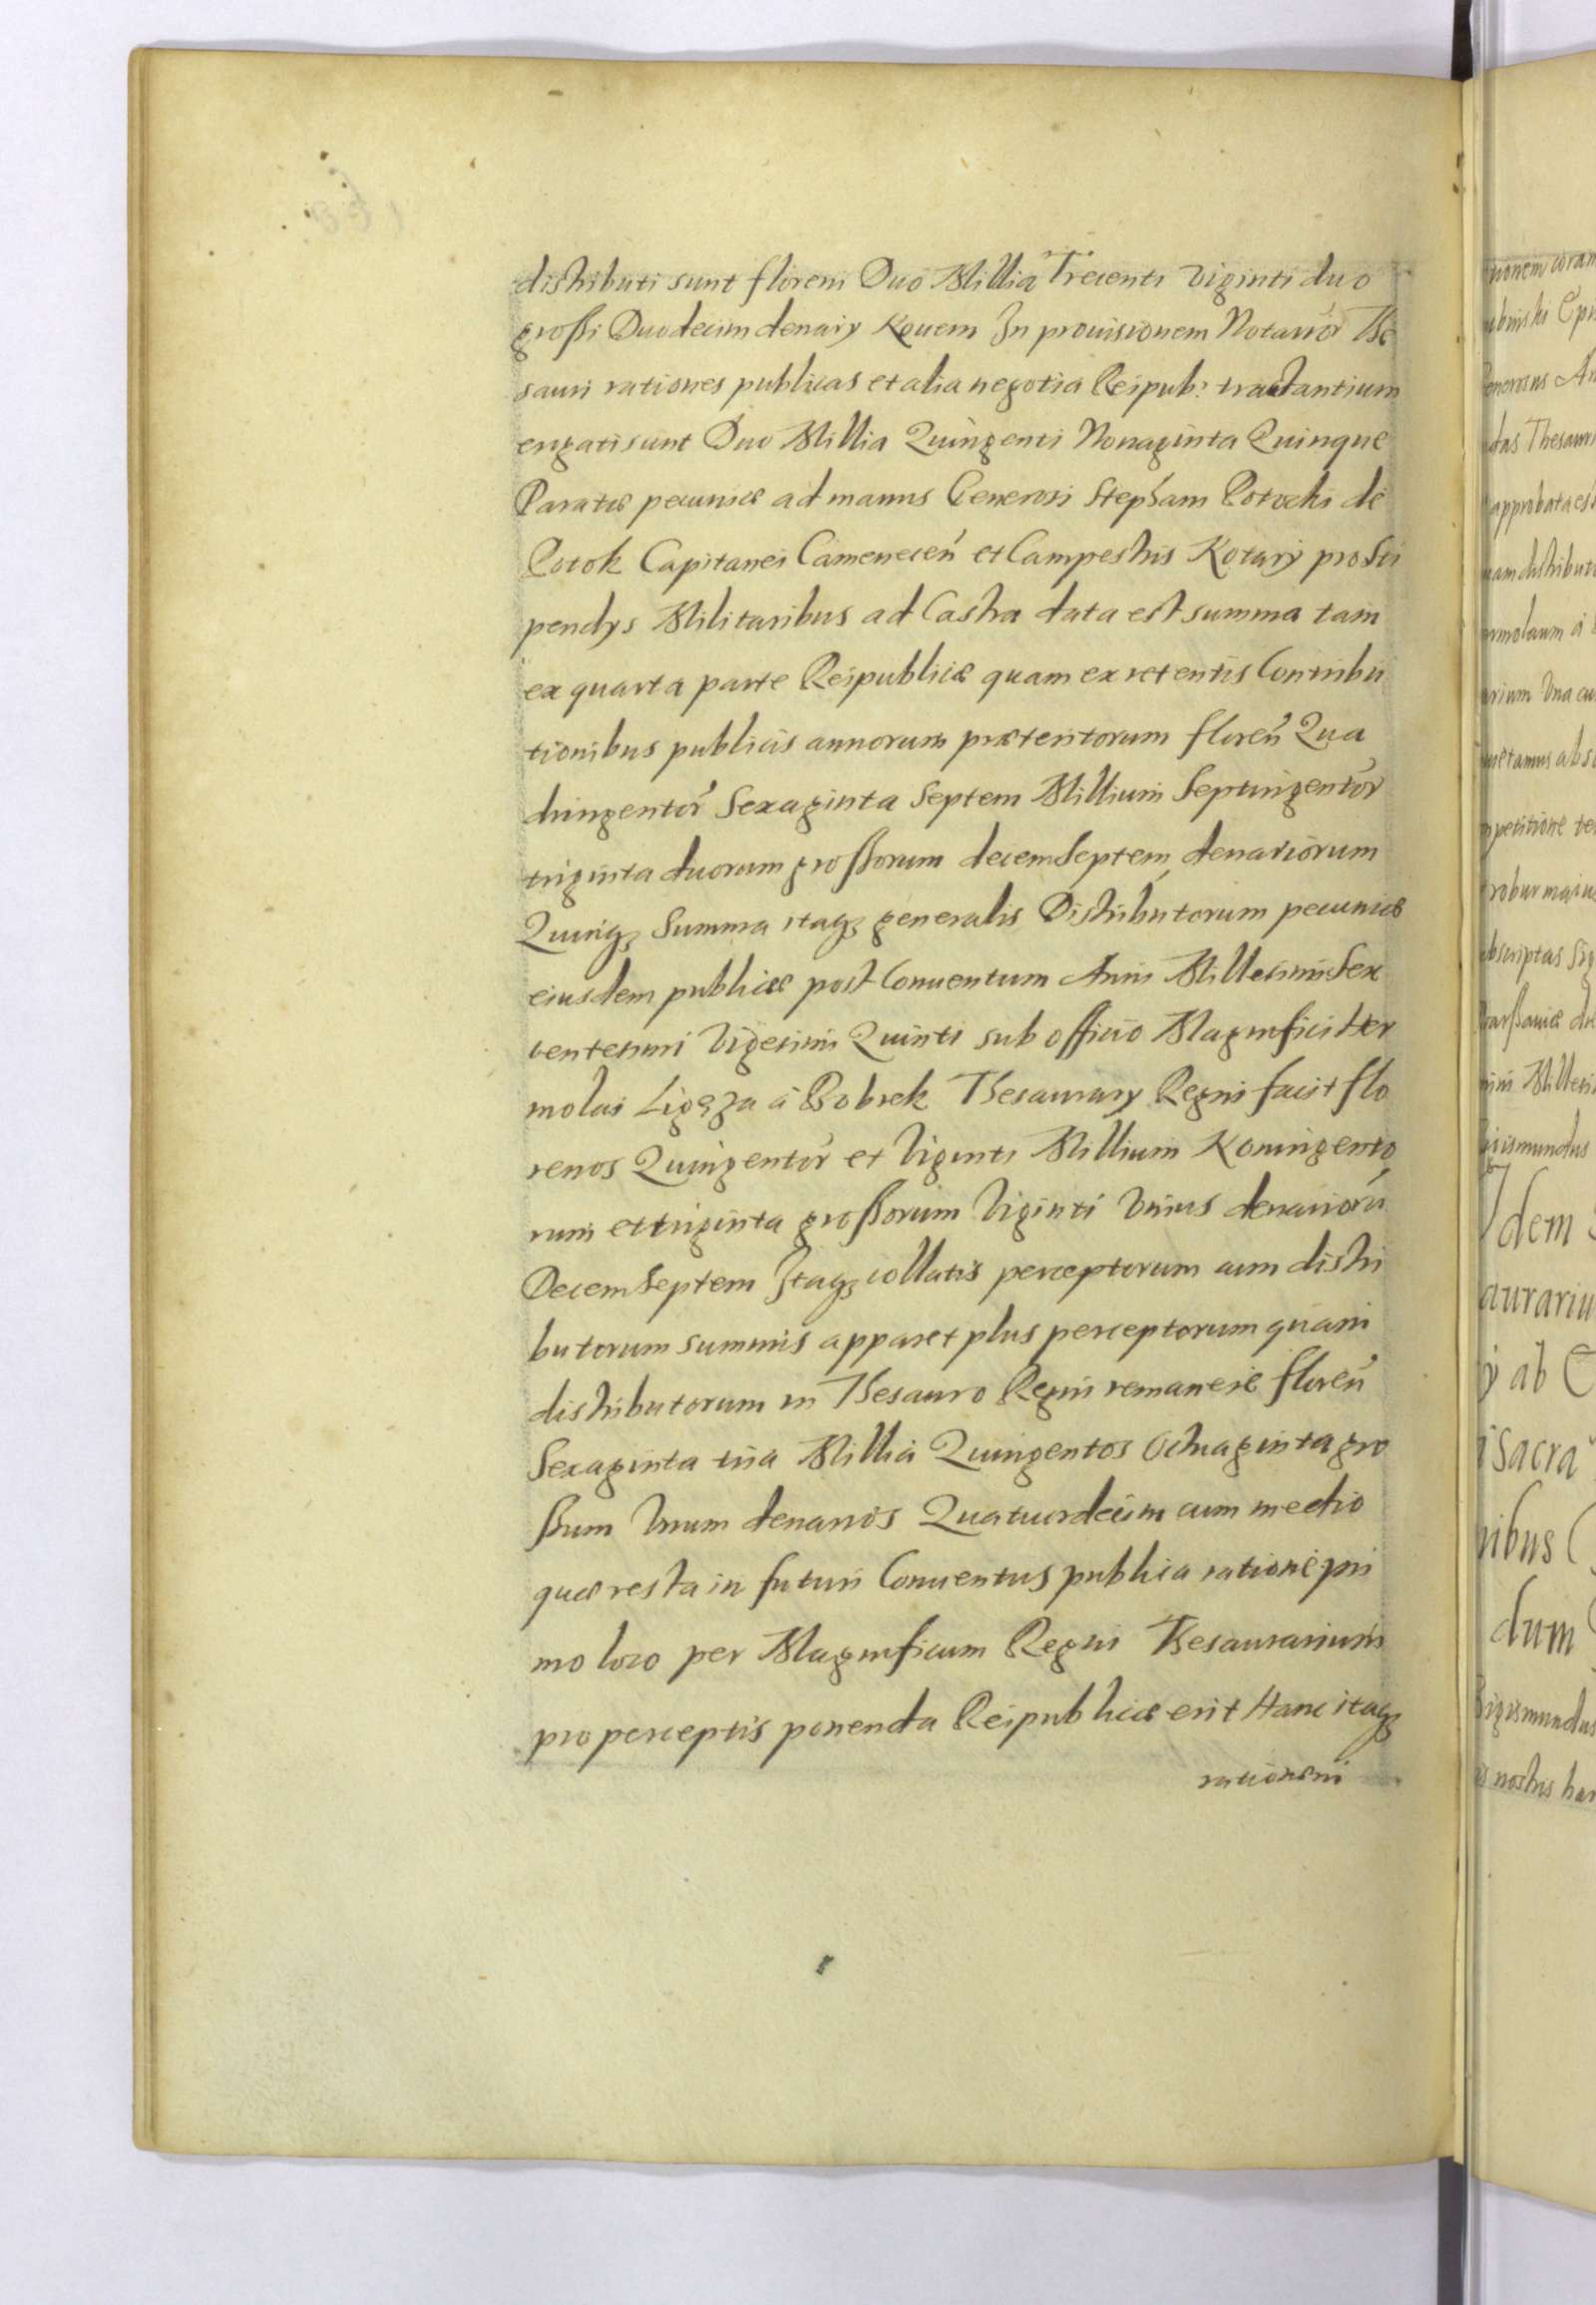 distributi sunt floreni Duo Millia Trecenti Viginti duo
großi Duodecim denarÿ Nouem In prouisionem Notarior̃ The
sauri rationes publicas et alia negotia Reipub: tractantium
erogati sunt Duo Millia Quingenti Nonaginta Quinque
Paratæ pecuniæ ad manus Generosi Stephani Potocki de
Potok Capitanei Camenecen̄ et Campestris Notarÿ pro Sti
pendÿs Militaribus ad Castra data est summa tam
ex quarta parte Reipublicæ quam ex retentis Contribu
tionibus publicis annorum præteritorum floren̄ Qua
dringentor̃ Sexaginta Septem Millium Septingentor̃
triginta duorum großorum decem Septem denariorum
Quinqꝫ Summa itaqꝫ generalis Distributorum pecuniæ
eiusdem publicæ post Conuentum Anni Millesimi Sex
centesimi Vigesimi Quinti sub officio Magnifici Her
molai Ligęza á Bobrek Thesaurarÿ Regni facit flo
renos Quingentor̃ et Viginti Millium Noningento
rum et triginta großorum Viginti Vnius denariorū
Decem Septem Itaqꝫ collatis perceptorum cum distri
butorum summis apparet plus perceptorum quam
distributorum in Thesauro Regni remanere floren̄
Sexaginta tria Millia Quingentos Octuaginta gro
ßum Vnum denarios Quatuordecim cum medio
quæ resta in futuri Conuentus publica ratione pri
mo loco per Magnificum Regni Thesaurarium
pro perceptis ponenda Reipublicæ erit Hanc itaqꝫ
rationem